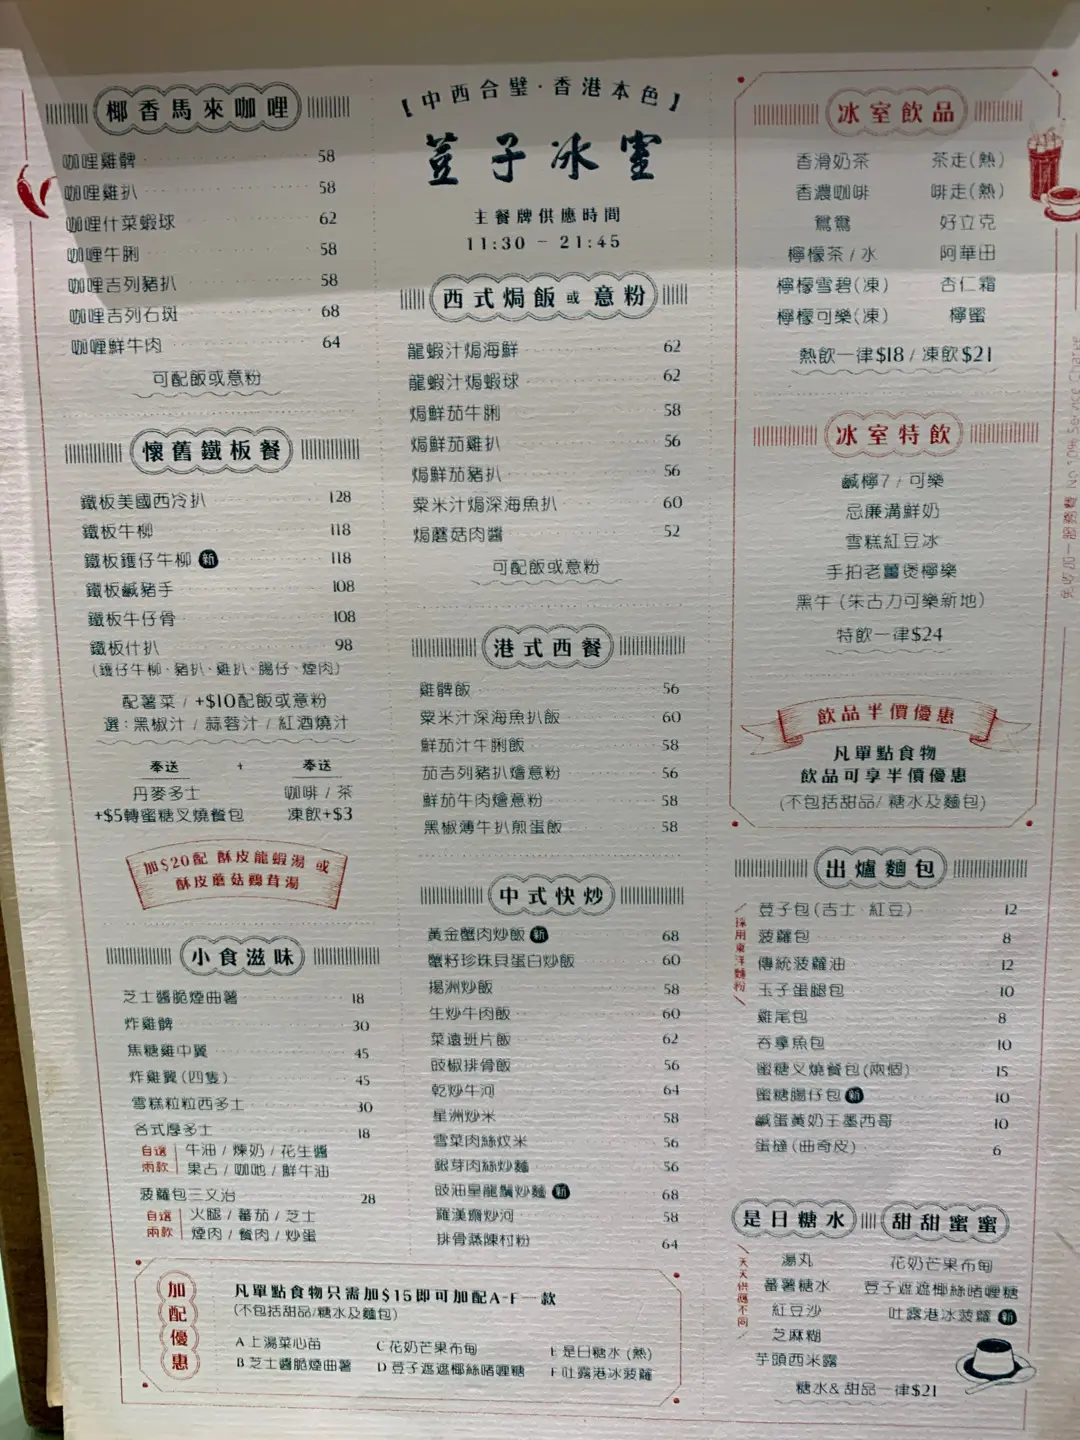 椰香馬來咖哩
咖哩雞髀 58
咖哩雞扒 58
咖哩什菜蝦球 62
咖喱牛脷 58
咖哩吉列豬扒 58
咖哩吉列石斑 68
咖喱鮮牛肉 64
可配飯或意粉
懷舊鐵板餐
鐵板美國西冷扒 128
鐵板牛柳 118
鐵板鑊仔牛柳 新 118
鐵板鹹豬手 108
鐵板牛仔骨 108
鐵板什扒 98
(鑊仔牛柳、豬扒、雞扒、腸仔、煙肉)
配薯菜 / +$10配飯或意粉
選：黑椒汁 / 蒜蓉汁 / 紅酒燒汁
奉送 + 奉送
丹麥多士 咖啡 / 茶
+$5轉蜜糖叉燒餐包 凍飲+$3
加$20配 酥皮龍蝦湯 或
酥皮蘑菇鷄茸湯
小食滋味
芝士醬脆煙曲薯 18
炸雞髀 30
焦糖雞中翼 45
炸雞翼(四隻) 45
雪糕粒粒西多士 30
各式厚多士 18
自選 牛油 / 煉奶 / 花生醬
兩款 果占 / 咖吔 / 鮮牛油
菠蘿包三文治 28
自選 火腿 / 蕃茄 / 芝士
兩款 煙肉 / 餐肉 / 炒蛋
【中西合璧·香港本色】
荳子冰室
主餐牌供應時間
11:30 - 21:45
西式焗飯或意粉
龍蝦汁焗海鮮 62
龍蝦汁焗蝦球 62
焗鮮茄牛脷 58
焗鮮茄雞扒 56
焗鮮茄豬扒 56
粟米汁焗深海魚扒 60
焗蘑菇肉醬 52
可配飯或意粉
港式西餐
雞髀飯 56
粟米汁深海魚扒飯 60
鮮茄汁牛脷飯 58
茄吉列豬扒燴意粉 56
鮮茄牛肉燴意粉 58
黑椒薄牛扒煎蛋飯 58
中式快炒
黃金蟹肉炒飯 新 68
蟹籽珍珠貝蛋白炒飯 60
揚洲炒飯 58
生炒牛肉飯 60
菜遠班片飯 62
豉椒排骨飯 56
乾炒牛河 64
星洲炒米 58
雪菜肉絲炆米 56
銀芽肉絲炒麵 56
豉油皇龍鬚炒麵 新 68
羅漢齋炒河 58
排骨蒸陳村粉 64
冰室飲品
香滑奶茶 茶走(熱)
香濃咖啡 啡走(熱)
鴛鴦 好立克
檸檬茶 / 水 阿華田
檸檬雪碧(凍) 杏仁霜
檸檬可樂(凍) 檸蜜
熱飲一律$18 / 凍飲$21
冰室特飲
鹹檸7 / 可樂
忌廉溝鮮奶
雪糕紅豆冰
手拍老薑煲檸樂
黑牛 (朱古力可樂新地)
特飲一律$24
飲品半價優惠
凡單點食物
飲品可享半價優惠
(不包括甜品/ 糖水及麵包)
免收加一服務費 No 10% Service Charge
出爐麵包
採用東洋麵粉
荳子包(吉士、紅豆) 12
菠蘿包 8
傳統菠蘿油 12
玉子蛋腿包 10
雞尾包 8
吞拿魚包 10
蜜糖叉燒餐包(兩個) 15
蜜糖腸仔包 新 10
鹹蛋黃奶王墨西哥 10
蛋撻(曲奇皮) 6
是日糖水 甜甜蜜蜜
天天供應不同
湯丸 花奶芒果布甸
蕃薯糖水 荳子遮遮椰絲啫喱糖
紅豆沙 吐露港冰菠蘿 新
芝麻糊
芋頭西米露
糖水& 甜品一律$21
加配優惠
凡單點食物只需加$15即可加配A-F一款
(不包括甜品/糖水及麵包)
A 上湯菜心苗 C 花奶芒果布甸 E 是日糖水 (熱)
B 芝士醬脆煙曲薯 D 荳子遮遮椰絲啫喱糖 F 吐露港冰菠蘿